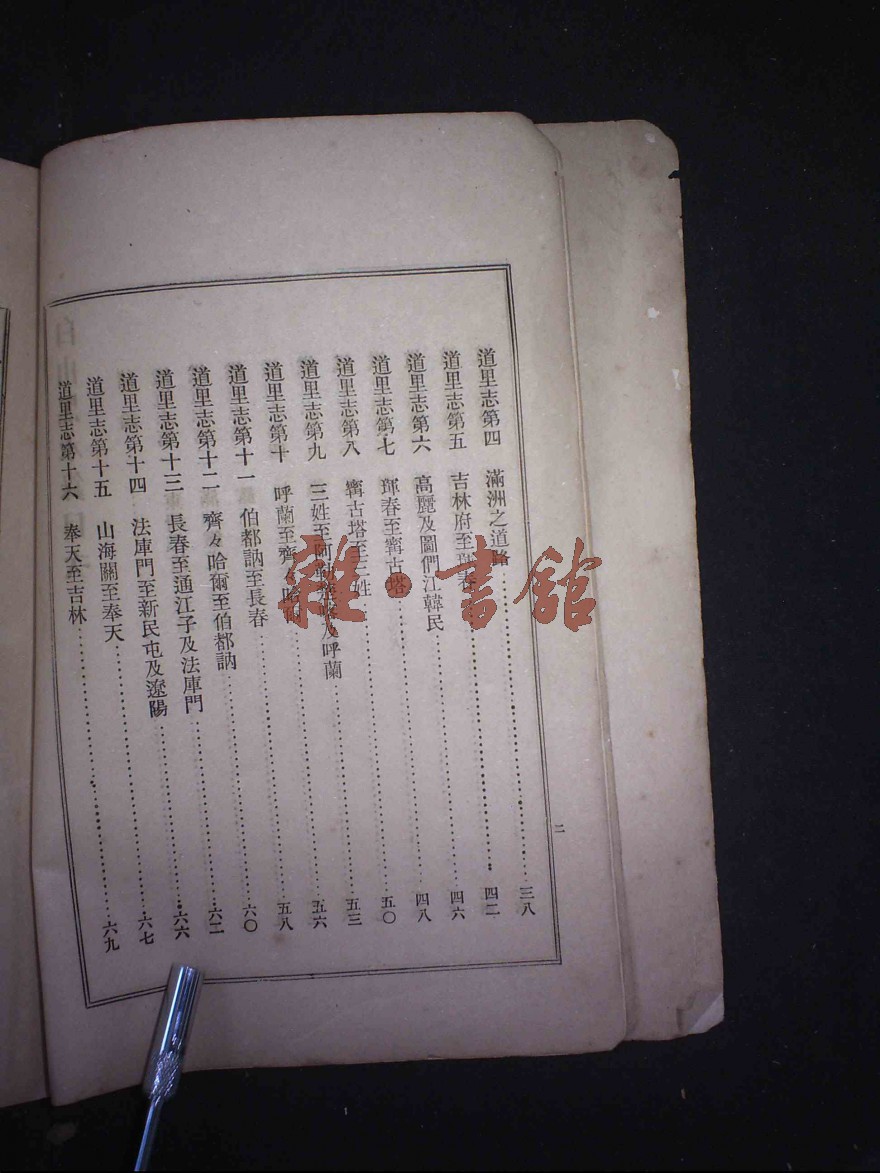 道里志第四 滿洲之道路……三八
道里志第五 吉林府至琿春……四二
道里志第六 高麗及圖們江韓民……四六
道里志第七 琿春至寗古塔……四八
道里志第八 寗古塔至三姓……五〇
道里志第九 三姓至阿勒楚喀及呼蘭……五三
道里志第十 呼蘭至齊々哈爾……五六
道里志第十一 伯都訥至長春……五八
道里志第十二 齊々哈爾至伯都訥……六〇
道里志第十三 長春至通江子及法庫門……六二
道里志第十四 法庫門至新民屯及遼陽……六六
道里志第十五 山海關至奉天……六七
道里志第十六 奉天至吉林……六九
二
雜·書館